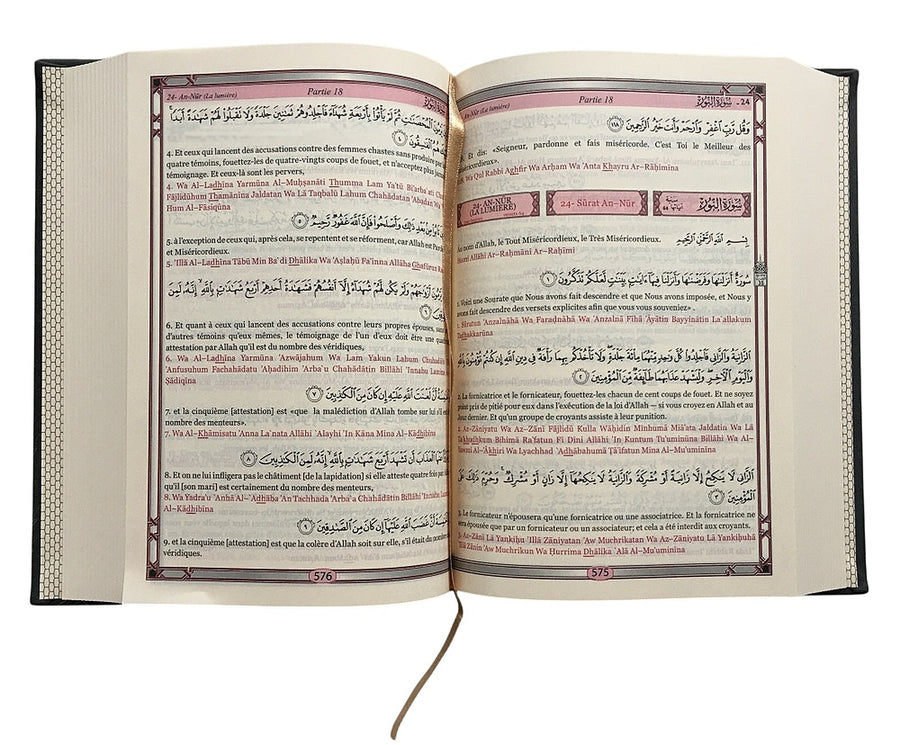 An-Nûr (La lumière) Partie 18 سُورَةُ النُّورِ - 24
وَقُل رَّبِّ ٱغْفِرْ وَٱرْحَمْ وَأَنتَ خَيْرُ ٱلرَّٰحِمِينَ ١١٨
Et dis: «Seigneur, pardonne et fais miséricorde. C'est Toi le Meilleur des
miséricordieux».
Wa Qul Rabbi Aghfir Wa Arĥam Wa 'Anta Khayru Ar-Rāĥimīna
24- AN-NÛR (LA LUMIÈRE) versets 64
24- Sûrat An-Nûr
سُورَةُ النُّورِ
nom d'Allah, le Tout Miséricordieux, le Très Miséricordieux. بِسْمِ ٱللَّهِ ٱلرَّحْمَٰنِ ٱلرَّحِيمِ
Allāhi Ar-Raĥmāni Ar-Raĥīmi
سُورَةٌ أَنزَلْنَٰهَا وَفَرَضْنَٰهَا وَأَنزَلْنَا فِيهَآ ءَايَٰتٍۭ بَيِّنَٰتٍ لَّعَلَّكُمْ تَذَكَّرُونَ ١
1. Voici une Sourate que Nous avons fait descendre et que Nous avons imposée, et Nous y
avons fait descendre des versets explicites afin que vous vous souveniez» .
1. Sūratun 'Anzalnāhā Wa Faradnāhā Wa 'Anzalnā Fīhā 'Āyātin Bayyinātin La`allakum
Tadhakkarūna
ٱلزَّانِيَةُ وَٱلزَّانِى فَٱجْلِدُوا۟ كُلَّ وَٰحِدٍ مِّنْهُمَا مِا۟ئَةَ جَلْدَةٍ وَلَا تَأْخُذْكُم بِهِمَا رَأْفَةٌ فِى دِينِ ٱللَّهِ إِن كُنتُمْ تُؤْمِنُونَ بِٱللَّهِ
وَٱلْيَوْمِ ٱلْءَاخِرِ وَلْيَشْهَدْ عَذَابَهُمَا طَآئِفَةٌ مِّنَ ٱلْمُؤْمِنِينَ ٢
2. La fornicatrice et le fornicateur, fouettez-les chacun de cent coups de fouet. Et ne soyez
point pris de pitié pour eux dans l'exécution de la loi d'Allah – si vous croyez en Allah et au
Jour dernier. Et qu'un groupe de croyants assiste à leur punition.
2. Az-Zāniyatu Wa Az-Zānī Fājlidū Kulla Wāĥidin Minhumā Miā'ata Jaldatin Wa Lā
Ta'khudhkum Bihimā Ra'fatun Fī Dīni Allāhi 'In Kuntum Tu'uminūna Billāhi Wa Al-
Yawmi Al-'Ākhiri Wa Lyachhad `Adhābahumā Ţā'ifatun Mina Al-Mu'uminīna
ٱلزَّانِى لَا يَنكِحُ إِلَّا زَانِيَةً أَوْ مُشْرِكَةً وَٱلزَّانِيَةُ لَا يَنكِحُهَآ إِلَّا زَانٍ أَوْ مُشْرِكٌ وَحُرِّمَ ذَٰلِكَ عَلَى
ٱلْمُؤْمِنِينَ ٣
3. Le fornicateur n'épousera qu'une fornicatrice ou une associatrice. Et la fornicatrice ne
sera épousée que par un fornicateur ou un associateur; et cela a été interdit aux croyants.
3. Az-Zānī Lā Yankiĥu 'Illā Zāniyatan 'Aw Muchrikatan Wa Az-Zāniyatu Lā Yankiĥuhā
'Illā Zānin 'Aw Muchrikun Wa Ĥurrima Dhālika `Alá Al-Mu'uminīna
575
24- An-Nûr (La lumière) Partie 18
ٱلْمُحْصَنَٰتِ ثُمَّ لَمْ يَأْتُوا۟ بِأَرْبَعَةِ شُهَدَآءَ فَٱجْلِدُوهُمْ ثَمَٰنِينَ جَلْدَةً وَلَا تَقْبَلُوا۟ لَهُمْ شَهَٰدَةً أَبَدًا
ٱلْفَٰسِقُونَ ٤
4. Et ceux qui lancent des accusations contre des femmes chastes sans produire par
quatre témoins, fouettez-les de quatre-vingts coups de fouet, et n'acceptez plus jamais
témoignage. Et ceux-là sont les pervers,
4. Wa Al-Ladhīna Yarmūna Al-Muĥşanāti Thumma Lam Ya'tū Bi'arba`ati
Fājlidūhum Thamānīna Jaldatan Wa Lā Taqbalū Lahum Chahādatan 'Abadan Wa
Hum Al-Fāsiqūna
مِنۢ بَعْدِ ذَٰلِكَ وَأَصْلَحُوا۟ فَإِنَّ ٱللَّهَ غَفُورٌ رَّحِيمٌ ٥
5. à l'exception de ceux qui, après cela, se repentent et se réforment, car Allah est
et Miséricordieux.
5. 'Illā Al-Ladhīna Tābū Min Ba`di Dhālika Wa 'Aşlaĥū Fa'inna Allāha Ghafūrun
أَزْوَٰجَهُمْ وَلَمْ يَكُن لَّهُمْ شُهَدَآءُ إِلَّآ أَنفُسُهُمْ فَشَهَٰدَةُ أَحَدِهِمْ أَرْبَعُ شَهَٰدَٰتٍۭ بِٱللَّهِ إِنَّهُۥ لَمِنَ
٦
6. Et quant à ceux qui lancent des accusations contre leurs propres épouses, sans
d'autres témoins qu'eux mêmes, le témoignage de l'un d'eux doit être une quatre
attestation par Allah qu'il est du nombre des véridiques,
6. Wa Al-Ladhīna Yarmūna 'Azwājahum Wa Lam Yakun Lahum
'Anfusuhum Fachahādatu 'Aĥadihim 'Arba`u Chahādātin Billāhi 'Innahu
Şādiqīna
أَنَّ لَعْنَتَ ٱللَّهِ عَلَيْهِ إِن كَانَ مِنَ ٱلْكَٰذِبِينَ ٧
7. et la cinquième [attestation] est «que la malédiction d'Allah tombe sur lui s'il
nombre des menteurs».
7. Wa Al-Khāmisatu 'Anna La`nata Allāhi `Alayhi 'In Kāna Mina Al-Kādhibīna
ٱلْعَذَابَ أَن تَشْهَدَ أَرْبَعَ شَهَٰدَٰتٍۭ بِٱللَّهِ إِنَّهُۥ لَمِنَ ٱلْكَٰذِبِينَ ٨
8. Et on ne lui infligera pas le châtiment [de la lapidation] si elle atteste quatre fois
qu'il [son mari] est certainement du nombre des menteurs,
8. Wa Yadra'u `Anhā Al-`Adhāba 'An Tachhada 'Arba`a Chahādātin Billāhi 'Innahu
Al-Kādhibīna
أَنَّ غَضَبَ ٱللَّهِ عَلَيْهَآ إِن كَانَ مِنَ ٱلصَّٰدِقِينَ ٩
9. et la cinquième [attestation] est que la colère d'Allah soit sur elle, s'il était du nombre
véridiques.
576